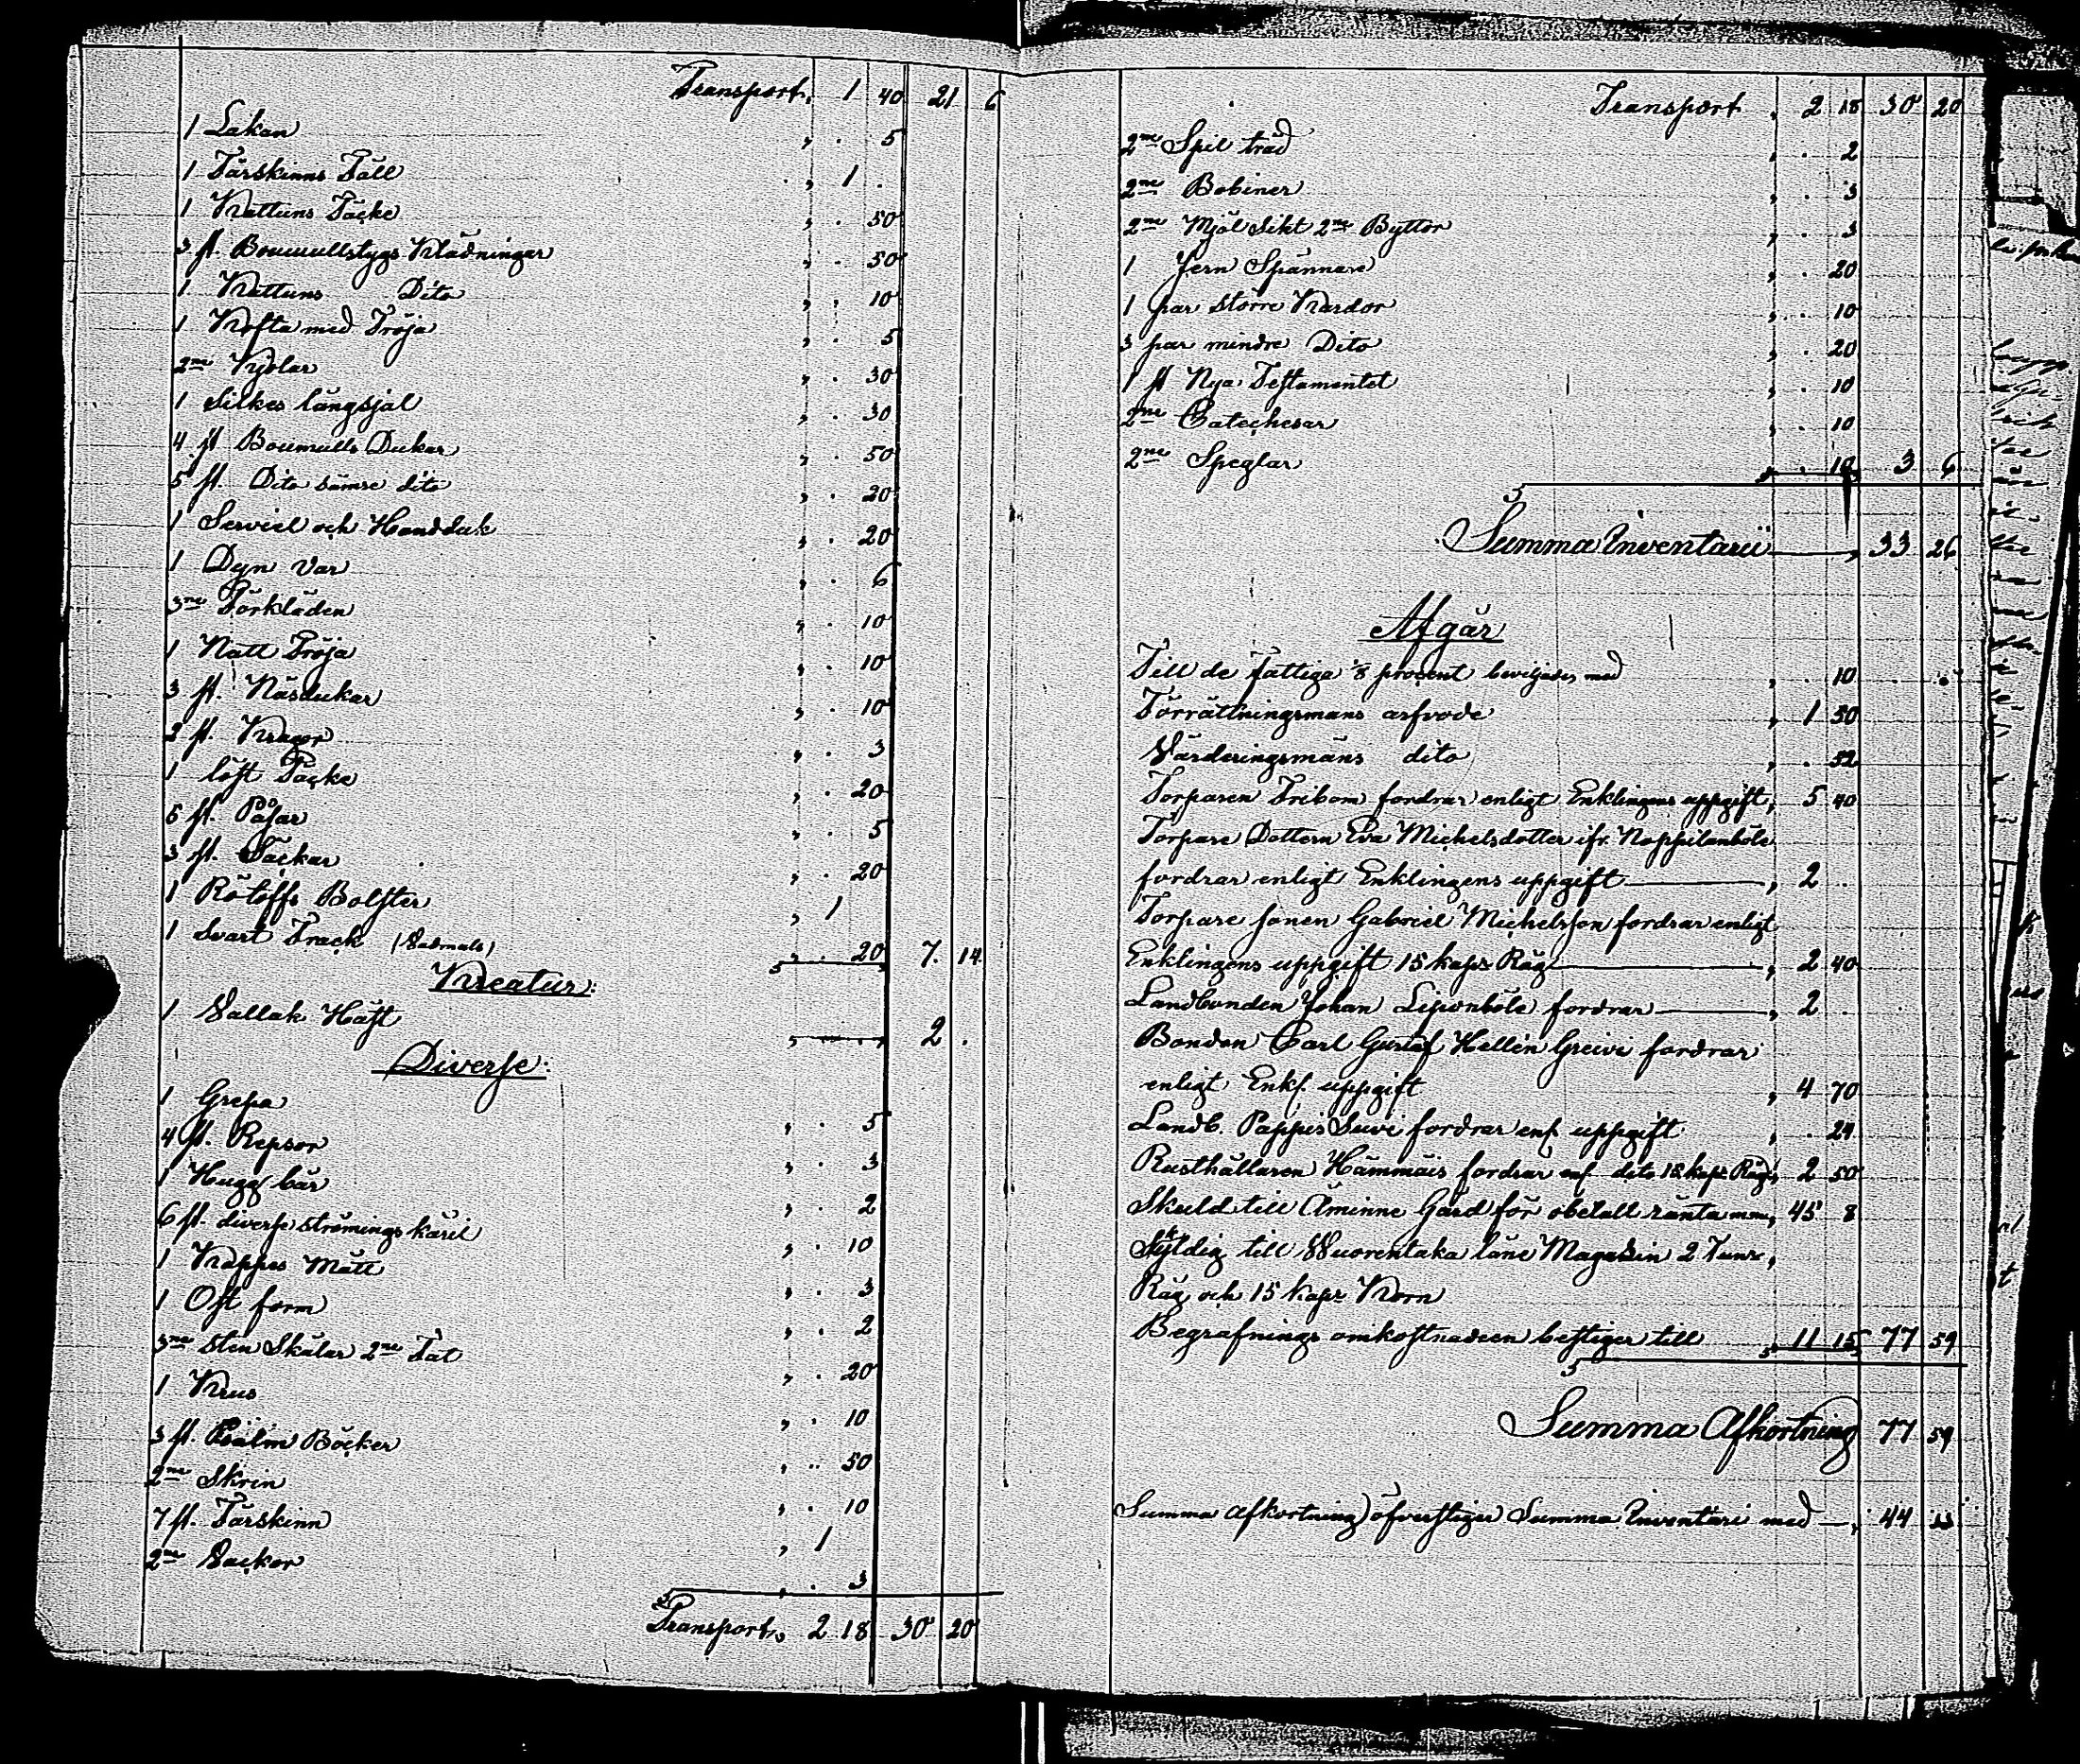 Transport, 1 40 21 6
1 Lakan , . 5
1 Fårskinns Fäll , 1 .
1 Kattuns Täcke , . 50
3 st. Boumullstygs Klädningar , . 50
1 Kattuns Dito , . 10
1 Kofta med Tröja , . 5
2ne Kjolar , . 30
1 Silkes långsjal , . 30
4 st Boumulls Dukar , . 50
5 st. Dito sämre dito , . 20
1 Serviel och Handduk , . 20
1 Dyn Var , . 6
3ne Förkläden , . 10
1 Natt Tröja , . 10
3 st. Näsdukar , . 10
2 st. Kragor , . 3
1 löst Täcke , . 20
6 st. Påsar , . 5
3 st. Säckar , . 20
1 Rötöffs Bolster , 1
1 Svart Frack (Vadmals) , . 20 7. 14
Kreatur:
1 Vallak Häst , 2 .
Diverse:
1 Grepa , . 5
4 st. Repsor , . 3
1 Hugg bår , . 2
6 st. diverse strömings käril , . 10
1 Kappes Mått , . 3
1 Ost form , . 2
3ne sten Skålar 2ne Fat , . 20
1 Krus , . 10
3 st. Psalm Böcker , . 50
2ne Skrin , . 10
7 st. Fårskinn , 1
2ne Säckor , . 3
Transport, 2 18 30 20
Transport , 2 18 30 20
2ne Spil träd , . 2
2ne Bobiner , . 3
2ne Mjöl Sikt 2ne Byttor , . 3
1 Jern Spännare , . 20
1 par större Kardor , . 10
3 par mindre Dito , . 20
1 st Nya Testamentet , . 10
2ne Catechesar , . 10
2ne Speglar , . 10 3 6
Summa Inventarii , 33 26
Afgår
Till de fattiga 1/8 procent beviljades med , . 10
Förrättningsmans arfvode , 1 50
Värderingsmäns dito , . 52
Torparen Fribom fordrar enligt Enklingens uppgift, 5 40
Torpare Dottern Eva Michelsdotter ifr. Nappilanböle
fordrar enligt Enklingens uppgift , 2
Torpare sonen Gabriel Michelsson fordrar enligt
Enklingens uppgift 15 kapr Råg , 2 40
Landbonden Johan fordrar , 2
Bonden Carl Gustaf Hellin Greivi fordrar
enligt Enkl. uppgift , 4 70
Landb. Pappis Suvi fordrar enl uppgift , . 24
Rusthållaren Hämmäis fordrar enl dito 18 kapr Råg, 2 50
Skuld till Åminne Gård för obetalt ränta mm, 45 8
Skyldig till Wuorentaka låne Magasin 2 Tunr,
Råg och 15 kapr Korn
Begrafnings omkostnaden bestiger till , 11 15 77 59
Summa Afkortning 77 59
Summa afkortning öfverstiger Summa Inventari med , 44 33